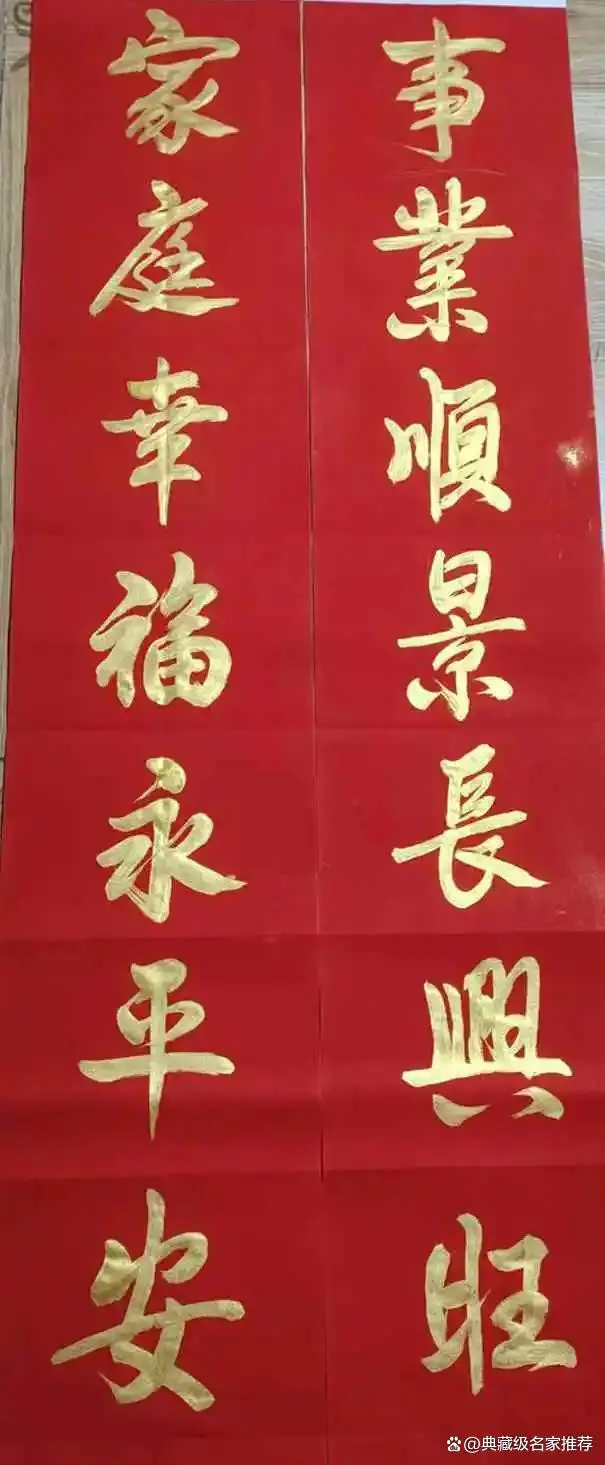 事業順景長興旺
家庭幸福永平安
@典藏级名家推荐